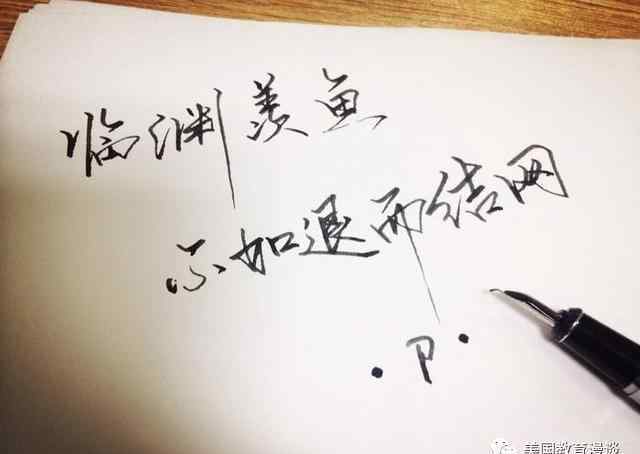 临渊羡鱼
不如退而结网
·P·
美国教育漫谈